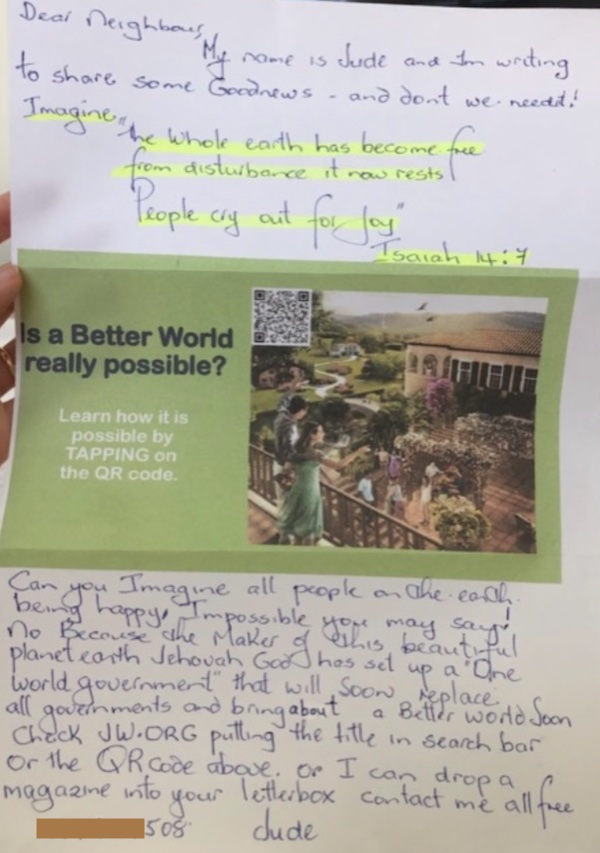 Dear Neighbour,
My name is Jude and Im writing
to share some Goodnews - and dont we needit!
Imagine "the whole earth has become free
from disturbance it now rests
People cry out for Joy"
Isaiah 14:7
Is a Better World
really possible?
Learn how it is
possible by
TAPPING on
the QR code.
Can you Imagine all people on the earth
being happy, Impossible you may say!
No Because the Maker of this beautiful
planet earth Jehovah God has set up a "One
world government" that will soon replace
all governments and bring about a Better world Soon
Check JW.ORG putting the title in search bar
or the QR code above. or I can drop a
magazine into your letterbox contact me all free
508 Jude